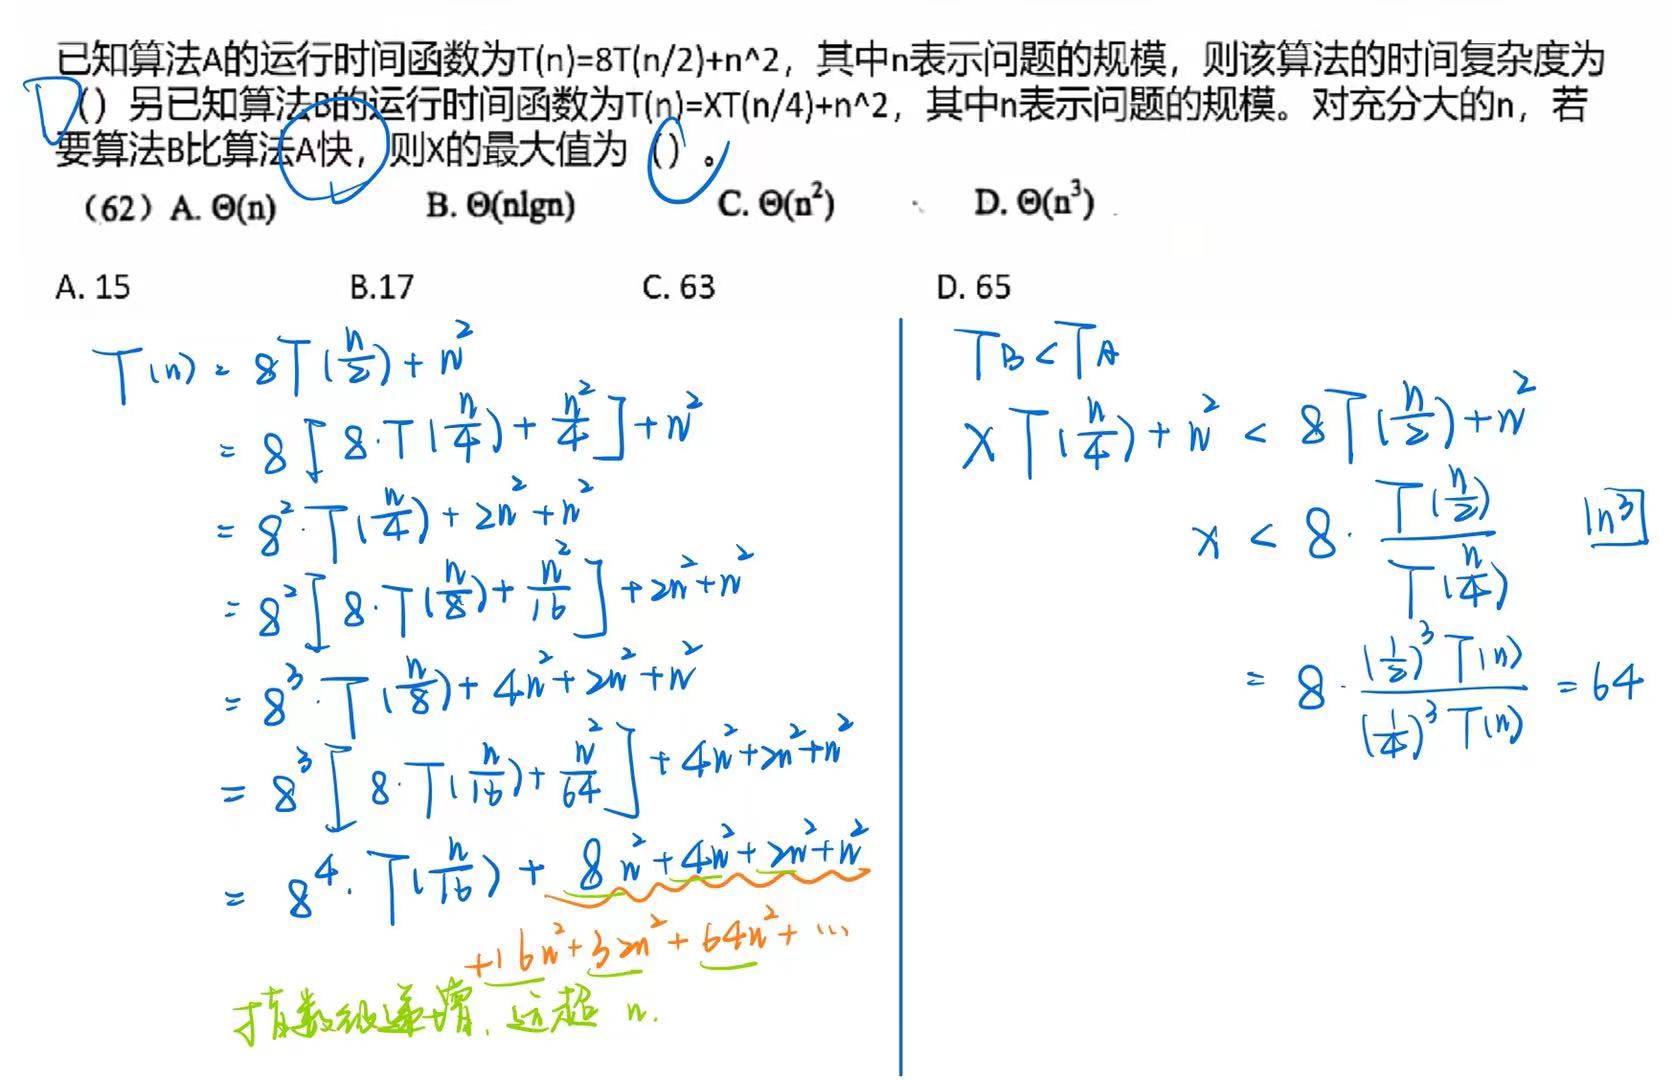 已知算法A的运行时间函数为T(n)=8T(n/2)+n^2，其中n表示问题的规模，则该算法的时间复杂度为
D（）另已知算法B的运行时间函数为T(n)=XT(n/4)+n^2，其中n表示问题的规模。对充分大的n，若
要算法B比算法A快，则X的最大值为（）。
（62）A. Θ(n) B. Θ(nlgn) C. Θ(n²) D. Θ(n³)
A. 15 B.17 C. 63 D. 65
T(n) = 8T(n/2) + n²
= 8[8·T(n/4) + n²/4] + n²
= 8²·T(n/4) + 2n² + n²
= 8²[8·T(n/8) + n²/16] + 2n² + n²
= 8³·T(n/8) + 4n² + 2n² + n²
= 8³[8·T(n/16) + n²/64] + 4n² + 2n² + n²
= 8⁴·T(n/16) + 8n² + 4n² + 2n² + n²
+16n² + 32n² + 64n² + ...
指数级递增，远超 n.
T_B < T_A
XT(n/4) + n² < 8T(n/2) + n²
x < 8·T(n/2)/T(n/4) n³
= 8·(1/2)³T(n)/(1/4)³T(n) = 64